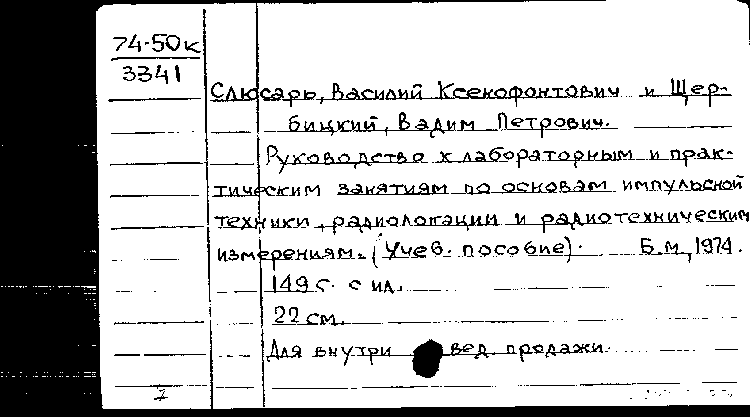 74-50к
3341
Слюсарь, Василий Ксенофонтович и Щер-
бицкий, Вадим Петрович.
Руководство к лабораторным и прак-
тическим занятиям по основам импульсной
техники, радиолокации и радиотехническим
измерениям. (Учеб. пособие). Б.м., 1974.
149 с. с ил.
22 см.
Для внутри вед. продажи.